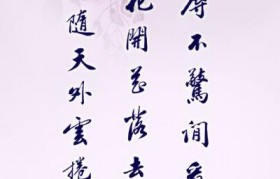 辱不驚閒看
花開花落去
随天外雲捲